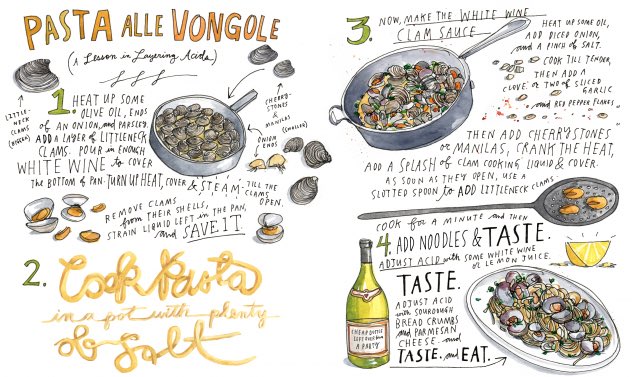 PASTA ALLE VONGOLE
(A Lesson in Layering Acids)
LITTLE-
NECK
CLAMS
(BIGGER)
CHERRY-
STONES
&
MANILAS
(SMALLER)
ONION
ENDS
1. HEAT UP SOME
OLIVE OIL, ENDS
of AN ONION, and PARSLEY.
ADD A LAYER of LITTLENECK
CLAMS. POUR in ENOUGH
WHITE WINE to COVER
The BOTTOM of PAN. TURN UP HEAT, COVER & STEAM TILL THE
CLAMS
OPEN.
REMOVE CLAMS
from THEIR SHELLS,
STRAIN LIQUID LEFT in THE PAN,
and SAVE IT.
2. Cook Pasta
in a pot with plenty
of Salt
3. NOW, MAKE THE WHITE WINE
CLAM SAUCE.
HEAT UP SOME OIL,
ADD DICED ONION,
and A PINCH of SALT.
COOK TILL TENDER,
THEN ADD A
CLOVE or TWO of SLICED
GARLIC
and RED PEPPER FLAKES
THEN ADD CHERRYSTONES
or MANILAS, CRANK THE HEAT,
ADD A SPLASH of CLAM COOKING LIQUID & COVER.
AS SOON AS THEY OPEN, USE A
SLOTTED SPOON to ADD LITTLENECK CLAMS.
COOK for A MINUTE and THEN
4. ADD NOODLES & TASTE.
ADJUST ACID with SOME WHITE WINE
or LEMON JUICE.
TASTE.
ADJUST ACID
with SOURDOUGH
BREAD CRUMBS
and PARMESAN
CHEESE. and
TASTE. and EAT.
CHEAP BOTTLE
LEFT OVER from
A PARTY